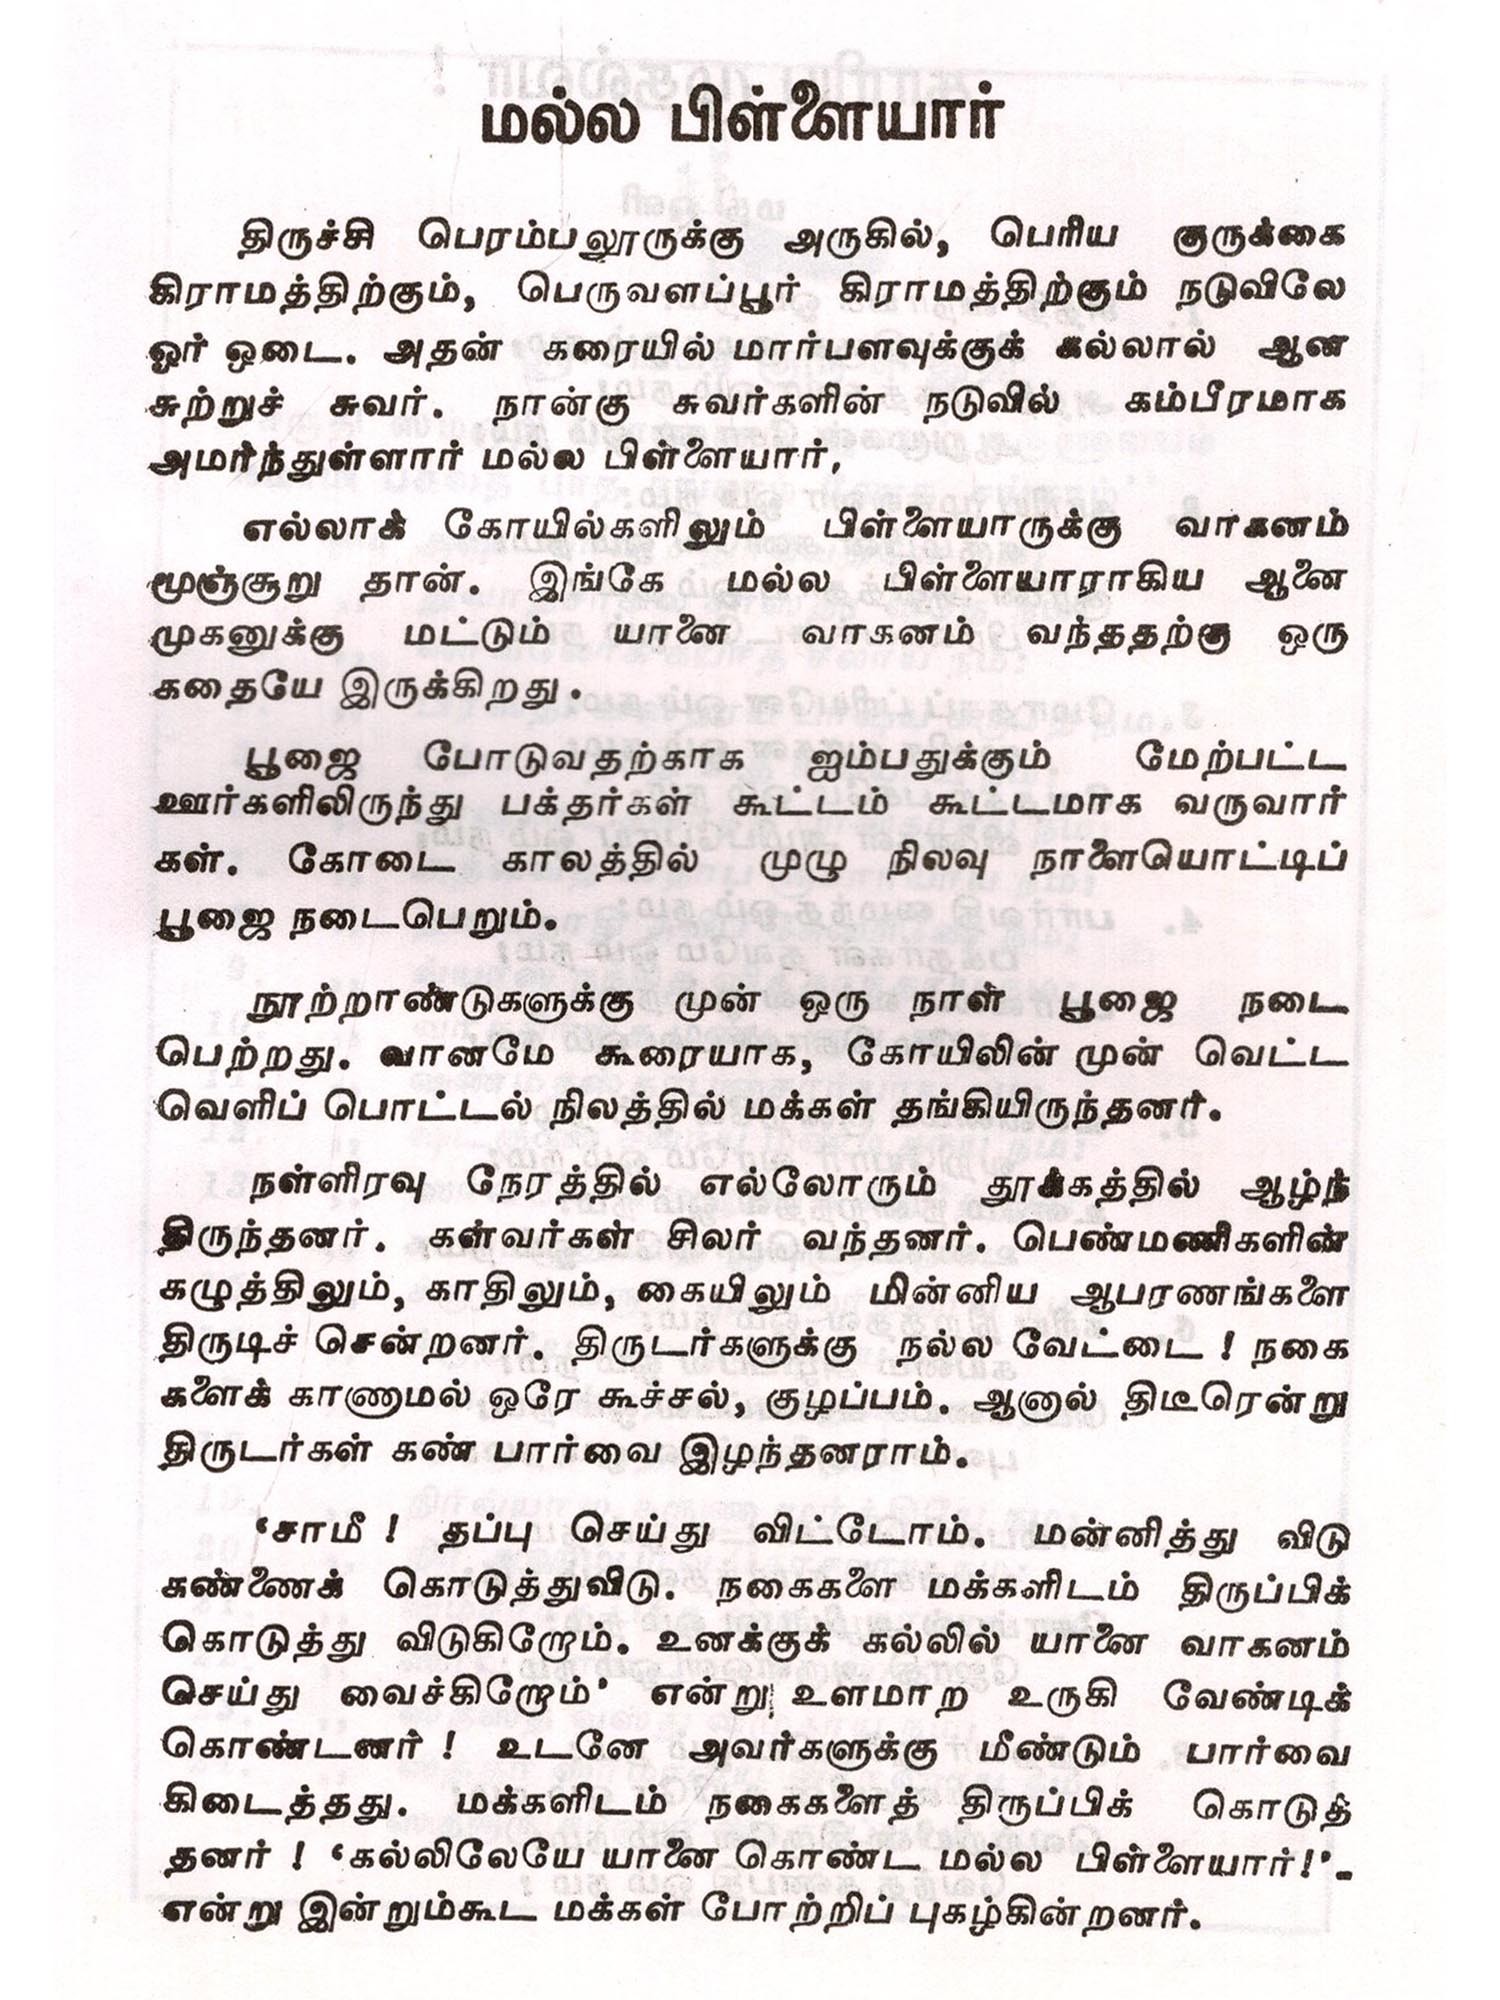 மல்ல பிள்ளையார்
திருச்சி பெரம்பலூருக்கு அருகில், பெரிய குருக்கை
கிராமத்திற்கும், பெருவளப்பூர் கிராமத்திற்கும் நடுவிலே
ஓர் ஒடை. அதன் கரையில் மார்பளவுக்குக் கல்லால் ஆன
சுற்றுச் சுவர். நான்கு சுவர்களின் நடுவில் கம்பீரமாக
அமர்ந்துள்ளார் மல்ல பிள்ளையார்.
எல்லாக் கோயில்களிலும் பிள்ளையாருக்கு வாகனம்
மூஞ்சூறு தான். இங்கே மல்ல பிள்ளையாராகிய ஆனை
முகனுக்கு மட்டும் யானை வாகனம் வந்ததற்கு ஒரு
கதையே இருக்கிறது.
பூஜை போடுவதற்காக ஐம்பதுக்கும் மேற்பட்ட
ஊர்களிலிருந்து பக்தர்கள் கூட்டம் கூட்டமாக வருவார்
கள். கோடை காலத்தில் முழு நிலவு நாளையொட்டிப்
பூஜை நடைபெறும்.
நூற்றாண்டுகளுக்கு முன் ஒரு நாள் பூஜை நடை
பெற்றது. வானமே கூரையாக, கோயிலின் முன் வெட்ட
வெளிப் பொட்டல் நிலத்தில் மக்கள் தங்கியிருந்தனர்.
நள்ளிரவு நேரத்தில் எல்லோரும் தூக்கத்தில் ஆழ்ந்
திருந்தனர். கள்வர்கள் சிலர் வந்தனர். பெண்மணிகளின்
கழுத்திலும், காதிலும், கையிலும் மின்னிய ஆபரணங்களை
திருடிச் சென்றனர். திருடர்களுக்கு நல்ல வேட்டை ! நகை
களைக் காணாமல் ஒரே கூச்சல், குழப்பம். ஆனால் திடீரென்று
திருடர்கள் கண் பார்வை இழந்தனராம்.
‘சாமீ ! தப்பு செய்து விட்டோம். மன்னித்து விடு
கண்ணைக் கொடுத்துவிடு. நகைகளை மக்களிடம் திருப்பிக்
கொடுத்து விடுகிறோம். உனக்குக் கல்லில் யானை வாகனம்
செய்து வைச்கிறோம்’ என்று உளமாற உருகி வேண்டிக்
கொண்டனர் ! உடனே அவர்களுக்கு மீண்டும் பார்வை
கிடைத்தது. மக்களிடம் நகைகளைத் திருப்பிக் கொடுத்
தனர் ! ‘கல்லிலேயே யானை கொண்ட மல்ல பிள்ளையார்!’-
என்று இன்றும்கூட மக்கள் போற்றிப் புகழ்கின்றனர்.